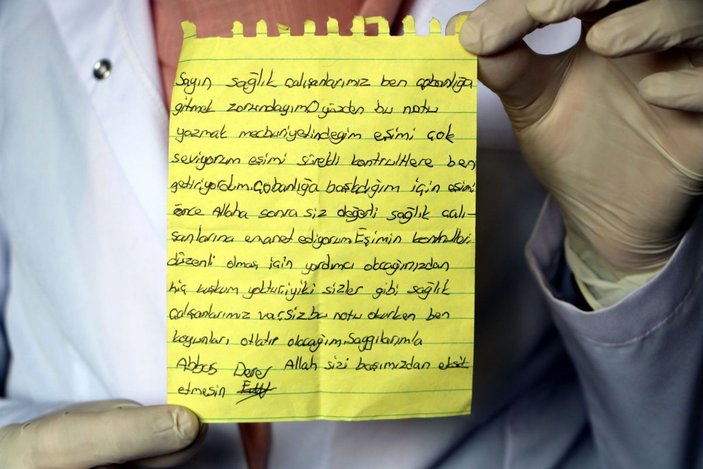 Sayın sağlık çalışanlarımız ben çobanlığa
gitmek zorundayım.O yüzden bu notu
yazmak mecburiyetindeyim eşimi çok
seviyorum eşimi sürekli kontrollere ben
getiriyordum.Çobanlığa başladığım için eşimi
önce Allaha sonra siz değerli sağlık çalı-
şanlarına emanet ediyorum.Eşimin kontrolleri
düzenli olması için yardımcı olacağınızdan
hiç kuşkum yoktur.iyiki sizler gibi sağlık
çalışanlarımız var.siz bu notu okurken ben
koyunları otlatır olacağım.Saygılarımla
Abbas Derer Allah sizi başımızdan eksik
etmesin